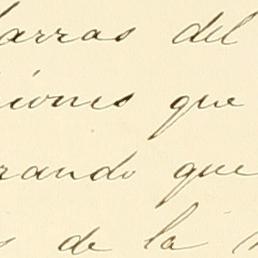 barras del
ciones que
rando que
s de la